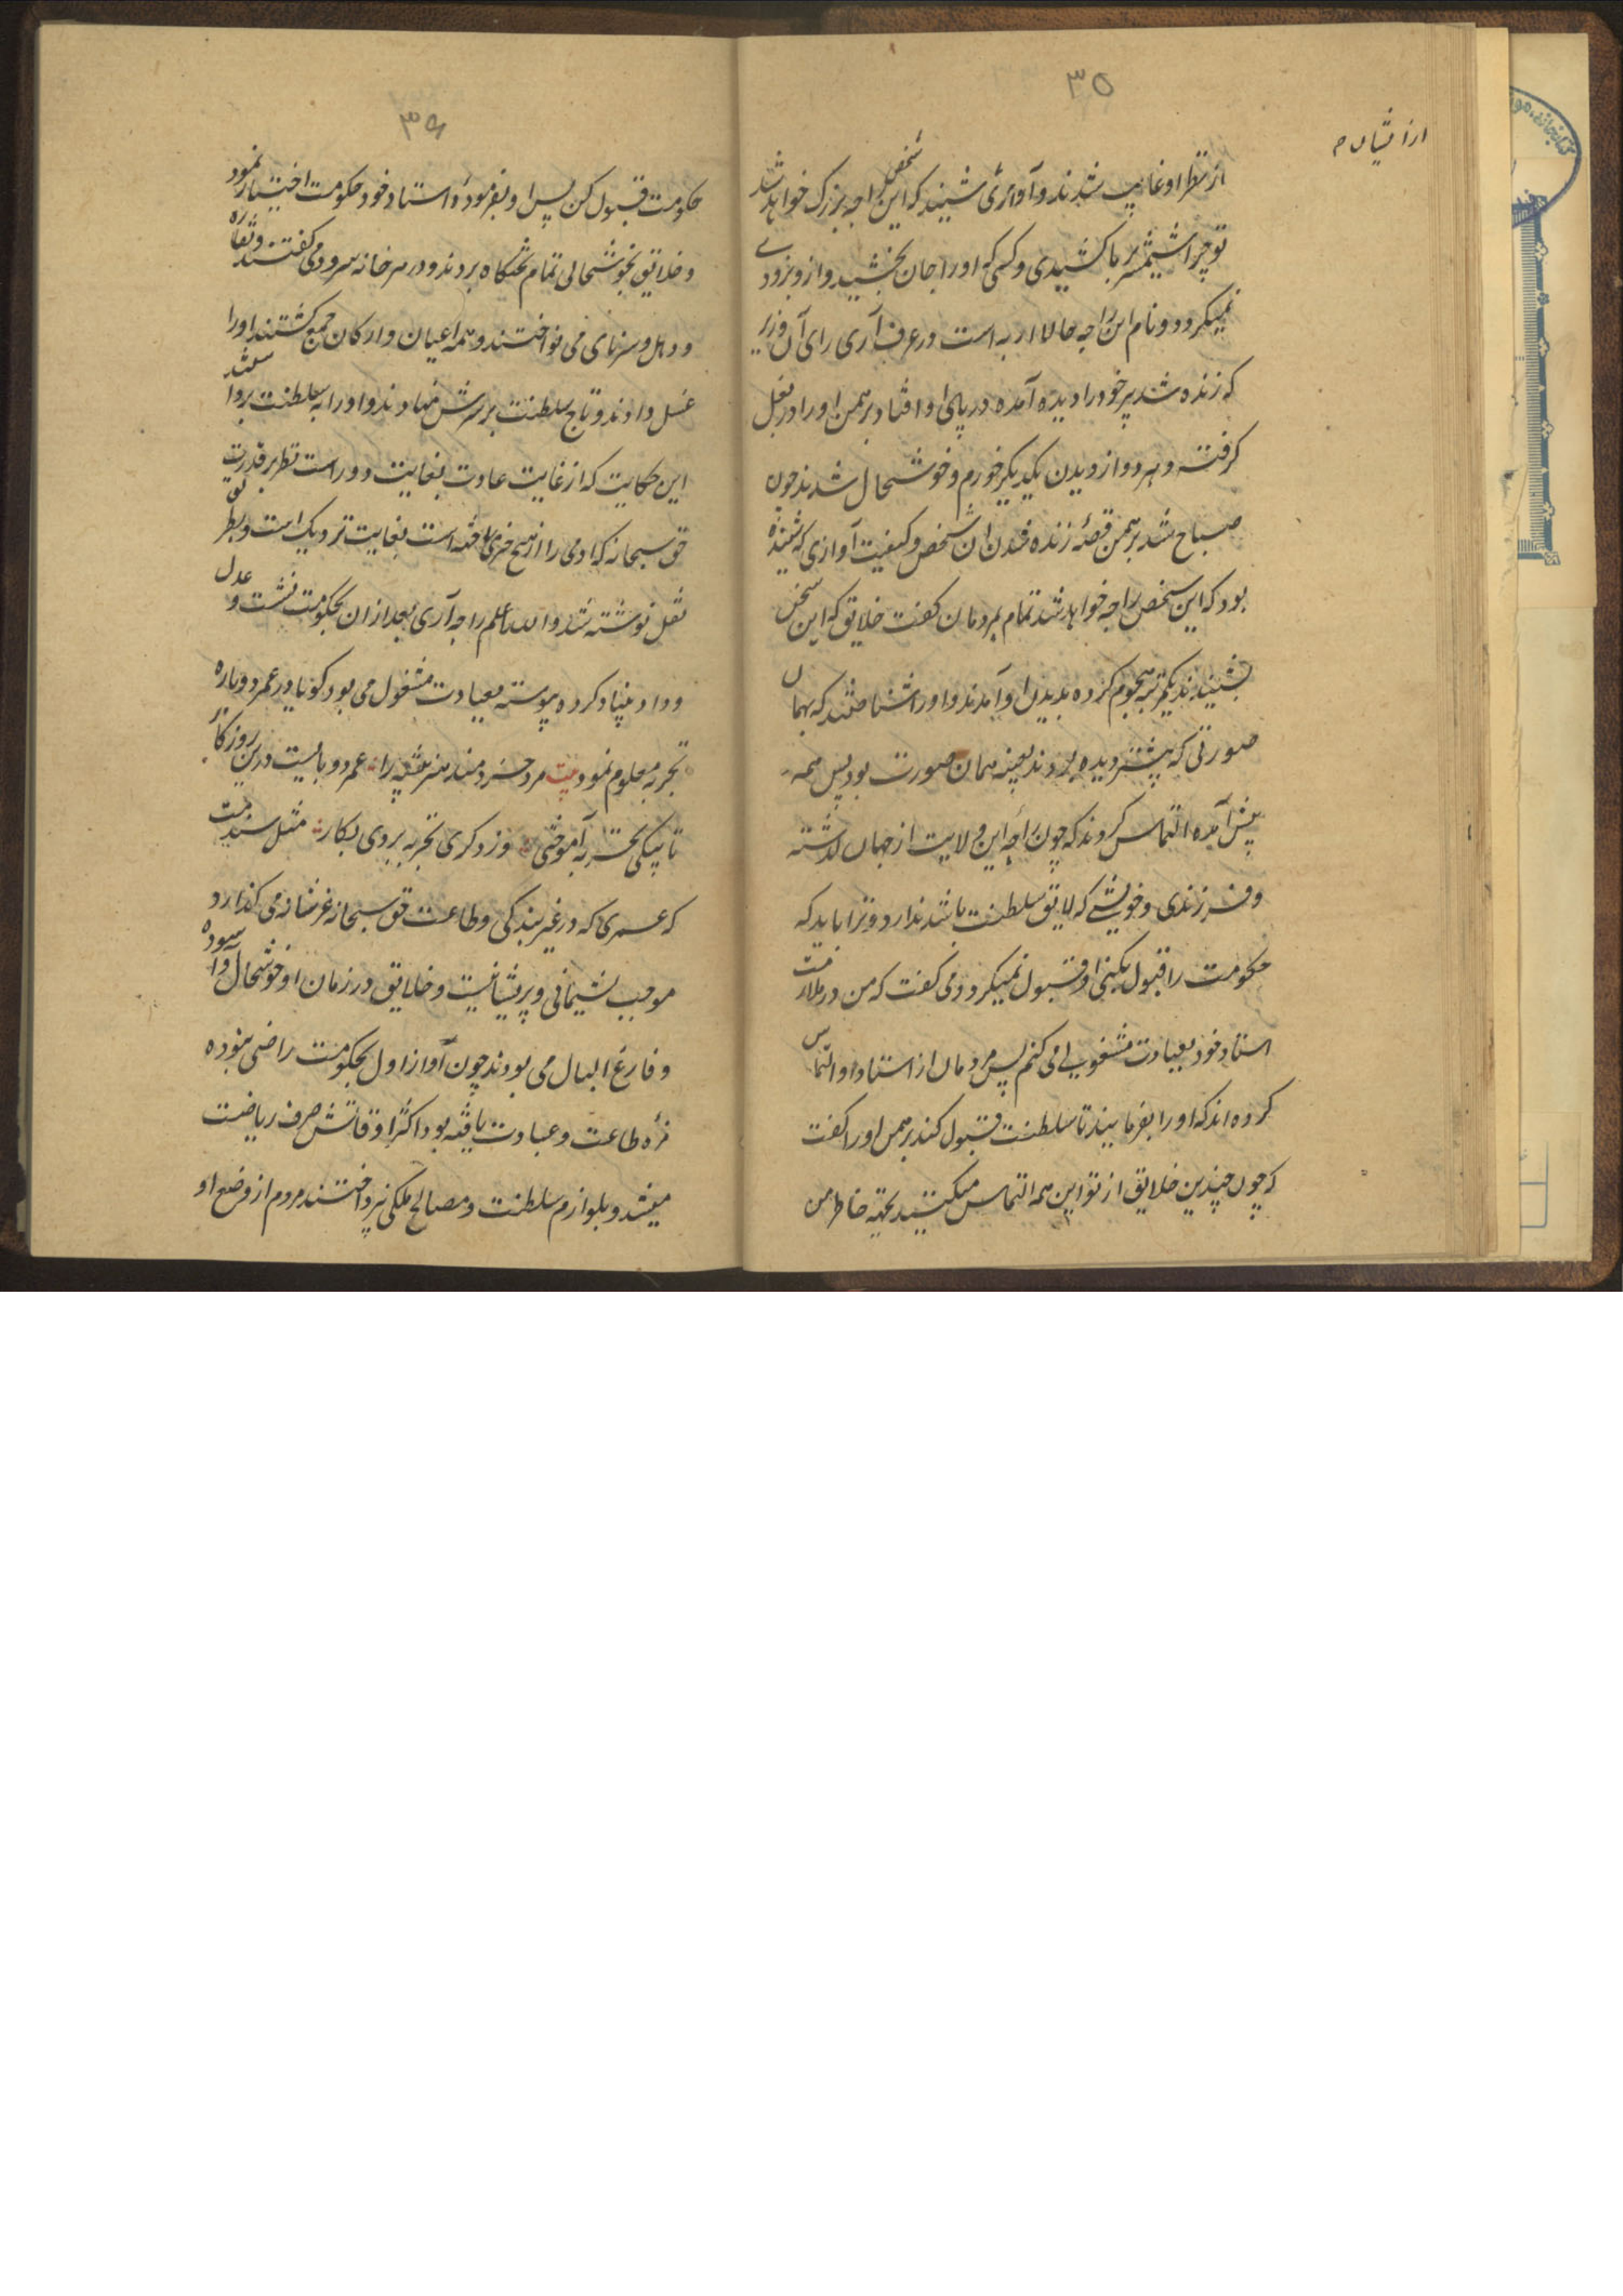 ۳۵
از نظر او غایب شدند و آوازی شنیدند که این شخص راجه بزرک خواهد شد
تو چرا شمشیر برما کشیدی و کسی که او را جان بخشید و ازو بزودی
نمیکرود و نام این راجه حالا اربه است و در عرف آری رای آن وزیر
که زنده شد پیر خود را دیده آمده در پای او افتاد برهمن او را در بغل
کرفته و هر دو از دیدن یکدیکر خورم و خوشحال شدند چون
صباح شد برهمن قصه زنده شدن آن شخص و کیفیت آوازی که شنیده
بود که این شخص راجه خواهد شد تمام بمردمان کفت خلایق که این سخن
بشنیدند یکمرتبه هجوم کرده بدیدن او آمدند و او را شناختند که بهمان
صورتی که پیشتر دیده بودند بعینه همان صورت بود پس همه
پیش آمده التماس کردند که چون راجه این ولایت از جهان کذشته
و فرزندی و خویشی که لایق سلطنت باشد ندارد و ترا باید که
حکومت را قبول بکنی او قبول نمیکرد و می کفت که من در ملازمت
استاد خود بعبادت مشغولی می کنم پس مردمان از استاد او التماس
کرده اند که او را بفرمایید تا سلطنت قبول کند برهمن او را کفت
که چون چندین خلایق از تو این همه التماس میکنند بجهته خاطر من
۳۶
حکومت قبول کن پس او بفرموده استاد خود حکومت اختیار نمود
و خلایق بخوشحالی تمام بتختکاه بردند و در هر خانه سرود می کفتند و نقاره
و دهل و سرنای می نواختند و همه اعیان و ارکان جمع کشتند او را
غسل دادند و تاج سلطنت بر سرش نهادند و او را به سلطنت برداشتند
این حکایت که از غایت عادت بغایت دور است نظر بر قدرت
حق سبحانه که ادمی را از هیچ آفریده است بغایت نزدیک است و بطریق
نقل نوشته شد والله اعلم راجه آری بعد از ان بحکومت نشست و عدل
و داد بنیاد کرده پیوسته بعبادت مشغول می بود کویا در عمر دوباره
تجربه معلوم نمود بیت مرد خردمند هنر پیشه را عمر دو بایست درین روزکار
تا بیکی تجربه آموختن وز دکری تجربه بردی بکار مثل سندیمت
که عمری که در غیر بندکی و طاعت حق سبحانه عز شانه می کذارد
موجب پشیمانی و پریشانیست و خلایق در زمان او خوشحال و آسوده
و فارغ البال می بودند چون آواز اول بحکومت راضی نبوده
مزه طاعت و عبادت یافته بود اکثر اوقاتش صرف ریاضت
میشد و بلوازم سلطنت و مصالح ملکی نپرداختند مردم از وضع او